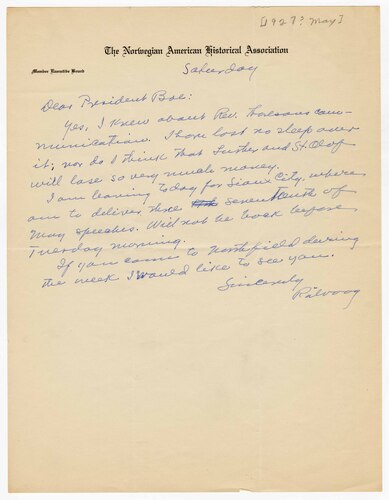 [1927? May]
The Norwegian American Historical Association
Member Executive Board
Saturday
Dear President Boe:
Yes, I knew about Rev. Thalsons com-
munication. I have lost no sleep over
it; nor do I think that Luther and St. Olaf
will lose so very much money.
I am leaving today for Sioux City, where
am to deliver three seventeenth of
May speeches. Will not be back before
Tuesday morning.
If you come to Northfield during
the week I would like to see you.
Sincerely
Rölvaag